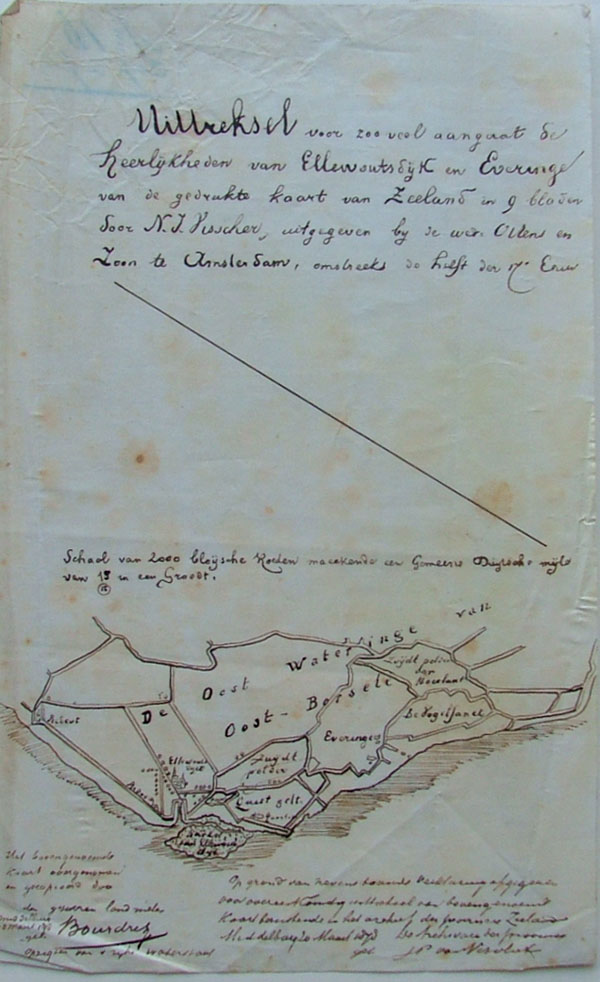 Uittreksel voor zoo veel aangaat de
heerlijkheden van Ellewoutsdijk en Everinge
van de gedrukte kaart van Zeeland in 9 bladen
door N. J. Visscher, uitgegeven by de wed. Ottens en
Zoon te Amsterdam, omstreeks de helft der 17e Eeuw
Schaal van 2000 bloijsche Roeden maeckende een Gemeene Duijtsche mijle
van 15 in een Groodt.
(15)
De Oost Wateringe van
Oost-Borsele
Zuijdt polder
van
De Vogelsanck
Everinge
Zuydt
polder
Ellewouts
dijck
Quist gelt.
Het bovengenoemde
kaart overgenomen
en gecopieerd door
den gezworen landmeter
Bourdrez
Op grond van nevenstaande verklaring afgegeven
voor overeenkomstig
kaart berustende in het archief der provincie Zeeland
Middelburg Maart
De Archivaris der provincie
get